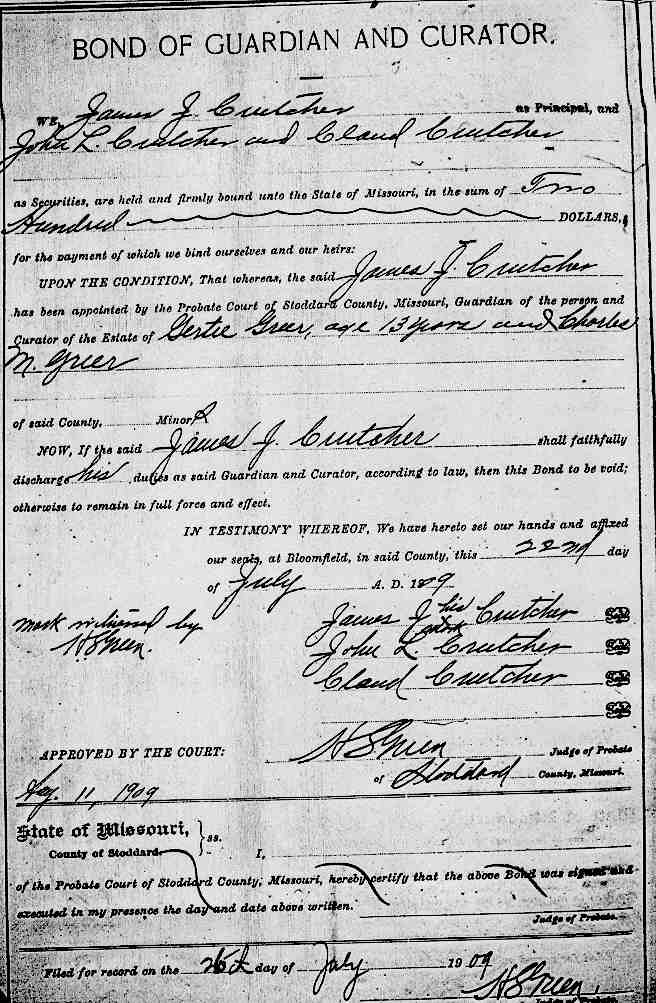 BOND OF GUARDIAN AND CURATOR.
WE, James J. Crutcher as Principal, and
John L. Crutcher and Claud Crutcher
as Securities, are held and firmly bound unto the State of Missouri, in the sum of Two
Hundred DOLLARS,
for the payment of which we bind ourselves and our heirs:
UPON THE CONDITION, That whereas, the said James J. Crutcher
has been appointed by the Probate Court of Stoddard County, Missouri, Guardian of the person and
Curator of the Estate of Gertie Greer, age 13 years and Charles
M. Greer
of said County, Minor
NOW, If the said James J. Crutcher shall faithfully
discharge his duties as said Guardian and Curator, according to law, then this Bond to be void;
otherwise to remain in full force and effect.
IN TESTIMONY WHEREOF, We have hereto set our hands and affixed
our seals, at Bloomfield, in said County, this 22nd day
of July A. D. 1909
mark witnessed by
James J. his mark Crutcher
John L. Crutcher
Claud Crutcher
APPROVED BY THE COURT: Judge of Probate
of Stoddard County, Missouri.
11, 1909
State of Missouri, ss.
County of Stoddard. I,
of the Probate Court of Stoddard County, Missouri, hereby certify that the above Bond was signed and
executed in my presence the day and date above written.
Judge of Probate.
Filed for record on the day of July 1909